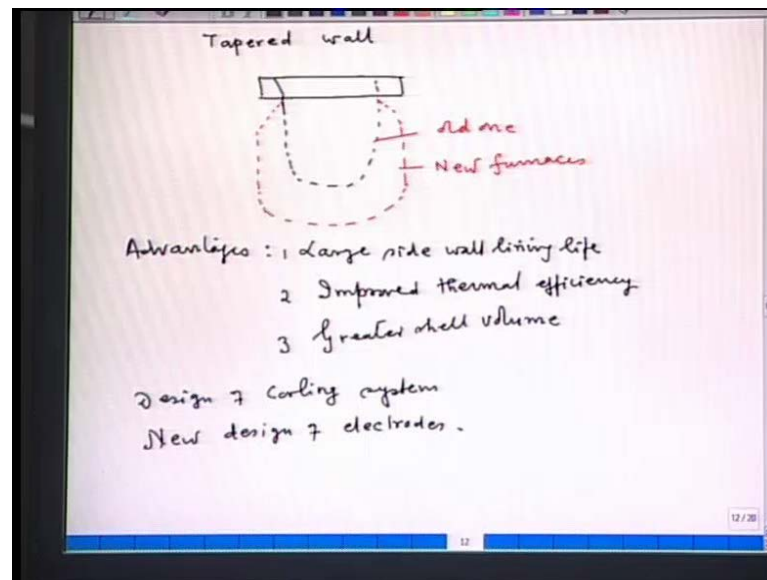 Tapered wall
old one
New furnaces
Advantages : 1 Large side wall lining life
2 Improved thermal efficiency
3 Greater shell volume
Design of Cooling system
New design of electrodes.
12/20
12